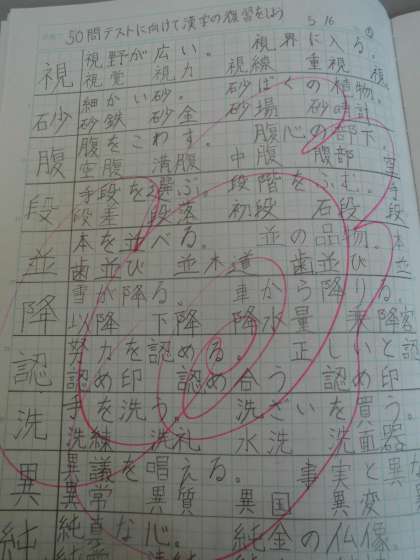 50問テストに向けて漢字の復習をしよう 5 16
視 視野が広い。 視界に入る。
視覚 視力 視線 重視 視
砂 細かい砂。 砂ばくの植物。
砂鉄 砂金 砂場 砂時計
腹 腹をこわす。 腹心の部下。
空腹 満腹 中腹 腹部 空
段 手段を選ぶ。 段階をふむ。 手
段差 段落 初段 石段 段
並 本を並べる。 並の品物。 本
歯並び 並木道 歯並び 並
降 雪が降る。 車から降りる。
以降 下降 降水量 乗降客
認 努力を認める。 正しいと認
認め印 認め合う 認め印
洗 手を洗う。 洗ざいを買う。
洗練 洗礼 水洗 洗面器
異 異議を唱える。 事実と異
異常 異質 異国 異変
純 純真な心。 純金の仏像。